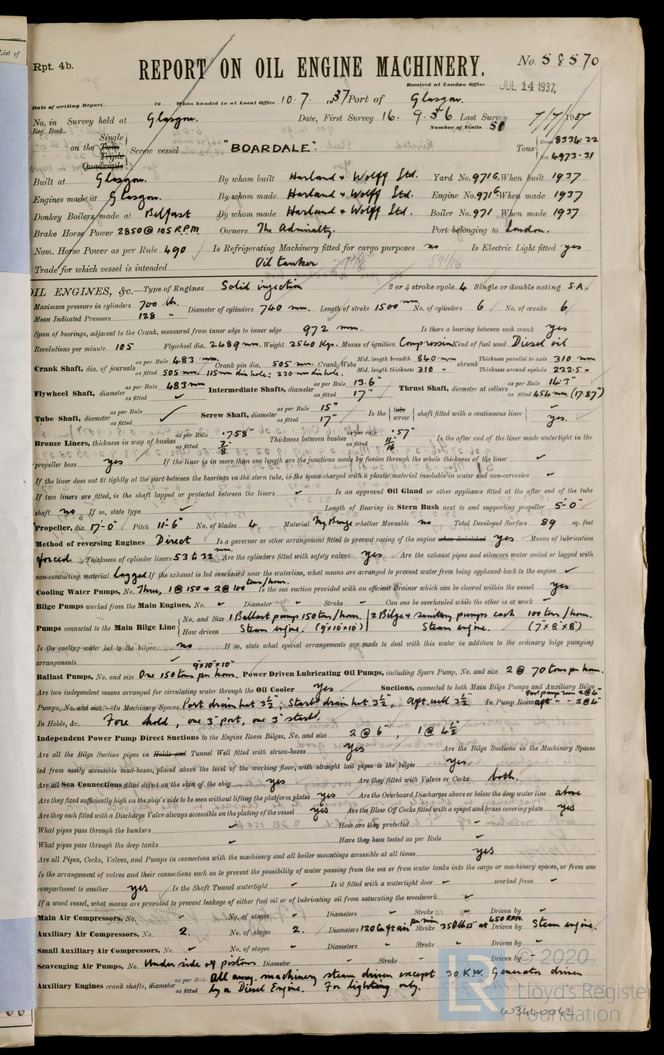 List of
Rpt. 4b.
REPORT ON OIL ENGINE MACHINERY.
No. 58570
Received at London Office JUL 14 1937
Date of writing Report 19 When handed in at Local Office 10.7.1937 Port of Glasgow.
No. in Reg. Book. Survey held at Glasgow. Date, First Survey 16.9.36 Last Survey 7/7/1937
Number of Visits 50
on the Single Twin Triple Quadruple Screw vessel "BOARDALE". Tons Gross 8334.22 Net 4973.31
Built at Glasgow. By whom built Harland & Wolff Ltd. Yard No. 971G. When built 1937
Engines made at Glasgow. By whom made Harland & Wolff Ltd. Engine No. 971G When made 1937
Donkey Boilers made at Belfast By whom made Harland & Wolff Ltd. Boiler No. 971 When made 1937
Brake Horse Power 2850 @ 105 R.P.M. Owners The Admiralty. Port belonging to London.
Nom. Horse Power as per Rule 490 Is Refrigerating Machinery fitted for cargo purposes no Is Electric Light fitted yes
Trade for which vessel is intended Oil tanker
OIL ENGINES, &c.—Type of Engines Solid injection 2 or 4 stroke cycle 4 Single or double acting S.A.
Maximum pressure in cylinders 700 lb. Diameter of cylinders 740 mm. Length of stroke 1500 mm No. of cylinders 6 No. of cranks 6
Mean Indicated Pressure 128 "
Span of bearings, adjacent to the Crank, measured from inner edge to inner edge 972 mm. Is there a bearing between each crank yes
Revolutions per minute 105 Flywheel dia. 2489 mm. Weight 2540 Kgs. Means of ignition Compression Kind of fuel used Diesel oil
Crank Shaft, dia. of journals as per Rule 483 mm. as fitted 505 mm. 115 mm dia hole; 230 mm dia hole. Crank pin dia. 505 mm. Crank Webs Mid. length breadth 840 mm Mid. length thickness 310 " shrunk Thickness parallel to axis 310 mm Thickness around eyehole 222.5 "
Flywheel Shaft, diameter as per Rule 483 mm as fitted ✓ Intermediate Shafts, diameter as per Rule 13.6" as fitted 17" Thrust Shaft, diameter at collars as per Rule 14.3" as fitted 454 mm (17.87")
Tube Shaft, diameter as per Rule as fitted ✓ Screw Shaft, diameter as per Rule 15" as fitted 17" Is the tube screw shaft fitted with a continuous liner yes.
Bronze Liners, thickness in way of bushes as per Rule .758" as fitted 7/8" Thickness between bushes as per rule .57" as fitted 11/16" Is the after end of the liner made watertight in the
propeller boss yes If the liner is in more than one length are the junctions made by fusion through the whole thickness of the liner ✓
If the liner does not fit tightly at the part between the bearings in the stern tube, is the space charged with a plastic material insoluble in water and non-corrosive ✓
If two liners are fitted, is the shaft lapped or protected between the liners ✓ Is an approved Oil Gland or other appliance fitted at the after end of the tube
shaft no If so, state type ✓ Length of Bearing in Stern Bush next to and supporting propeller 5'-0"
Propeller, dia. 17'-0" Pitch 11'-6" No. of blades 4 Material Mn Bronze whether Moveable no Total Developed Surface 89 sq. feet
Method of reversing Engines Direct Is a governor or other arrangement fitted to prevent racing of the engine when declutched yes Means of lubrication
forced. Thickness of cylinder liners 53 to 32 mm. Are the cylinders fitted with safety valves yes Are the exhaust pipes and silencers water cooled or lagged with
non-conducting material lagged If the exhaust is led overboard near the waterline, what means are arranged to prevent water from being syphoned back to the engine ✓
Cooling Water Pumps, No. Three, 1 @ 150 & 2 @ 100 tons/hour. Is the sea suction provided with an efficient strainer which can be cleared within the vessel yes
Bilge Pumps worked from the Main Engines, No. ✓ Diameter ✓ Stroke ✓ Can one be overhauled while the other is at work ✓
Pumps connected to the Main Bilge Line No. and Size 1 Ballast pump 150 tons/hour. 2 Bilge & sanitary pumps each 100 tons/hour.
How driven Steam engine. (9"x10"x10") Steam engine. (7"x8"x8")
Is the cooling water led to the bilges no If so, state what special arrangements are made to deal with this water in addition to the ordinary bilge pumping
arrangements ✓ 9"x10"x10"
Ballast Pumps, No. and size One 150 tons per hour. Power Driven Lubricating Oil Pumps, including Spare Pump, No. and size 2 @ 70 tons per hour.
Are two independent means arranged for circulating water through the Oil Cooler yes Suctions, connected to both Main Bilge Pumps and Auxiliary Bilge
Pumps, No. and size:—In Machinery Spaces Port drain hat 3½", Starb'd drain hat 3½", Aft. well 3½" In Pump Room
In Holds, &c. Fore hold, one 3" port, one 3" starb'd.
Independent Power Pump Direct Suctions to the Engine Room Bilges, No. and size 2 @ 6", 1 @ 4½"
Are all the Bilge Suction pipes in Holds and Tunnel Well fitted with strum-boxes Yes Are the Bilge Suctions in the Machinery Spaces
led from easily accessible mud-boxes, placed above the level of the working floor, with straight tail pipes to the bilges yes.
Are all Sea Connections fitted direct on the skin of the ship yes Are they fitted with Valves or Cocks both.
Are they fixed sufficiently high on the ship's side to be seen without lifting the platform plates yes Are the Overboard Discharges above or below the deep water line above
Are they each fitted with a Discharge Valve always accessible on the plating of the vessel yes Are the Blow Off Cocks fitted with a spigot and brass covering plate yes
What pipes pass through the bunkers ✓ How are they protected ✓
What pipes pass through the deep tanks ✓ Have they been tested as per Rule ✓
Are all Pipes, Cocks, Valves, and Pumps in connection with the machinery and all boiler mountings accessible at all times yes
Is the arrangement of valves and their connections such as to prevent the possibility of water passing from the sea or from water tanks into the cargo or machinery spaces, or from one
compartment to another yes Is the Shaft Tunnel watertight ✓ Is it fitted with a watertight door ✓ worked from ✓
If a wood vessel, what means are provided to prevent leakage of either fuel oil or of lubricating oil from saturating the woodwork ✓
Main Air Compressors, No. ✓ No. of stages ✓ Diameters ✓ Stroke ✓ Driven by ✓
Auxiliary Air Compressors, No. 2. No. of stages 2. Diameters 120 cu ft air per min Stroke 350 lb at 450 RPM. Driven by Steam engine.
Small Auxiliary Air Compressors, No. ✓ No. of stages ✓ Diameters ✓ Stroke ✓ Driven by ✓
Scavenging Air Pumps, No. Under side of pistons Diameter Stroke ✓ Driven by ✓
Auxiliary Engines crank shafts, diameter as per Rule as fitted All aux. machinery steam driven except 30 K.W. Generator driven
by a Diesel Engine. For lighting only.
© 2020
LR Lloyd's Register Foundation
W344-0042